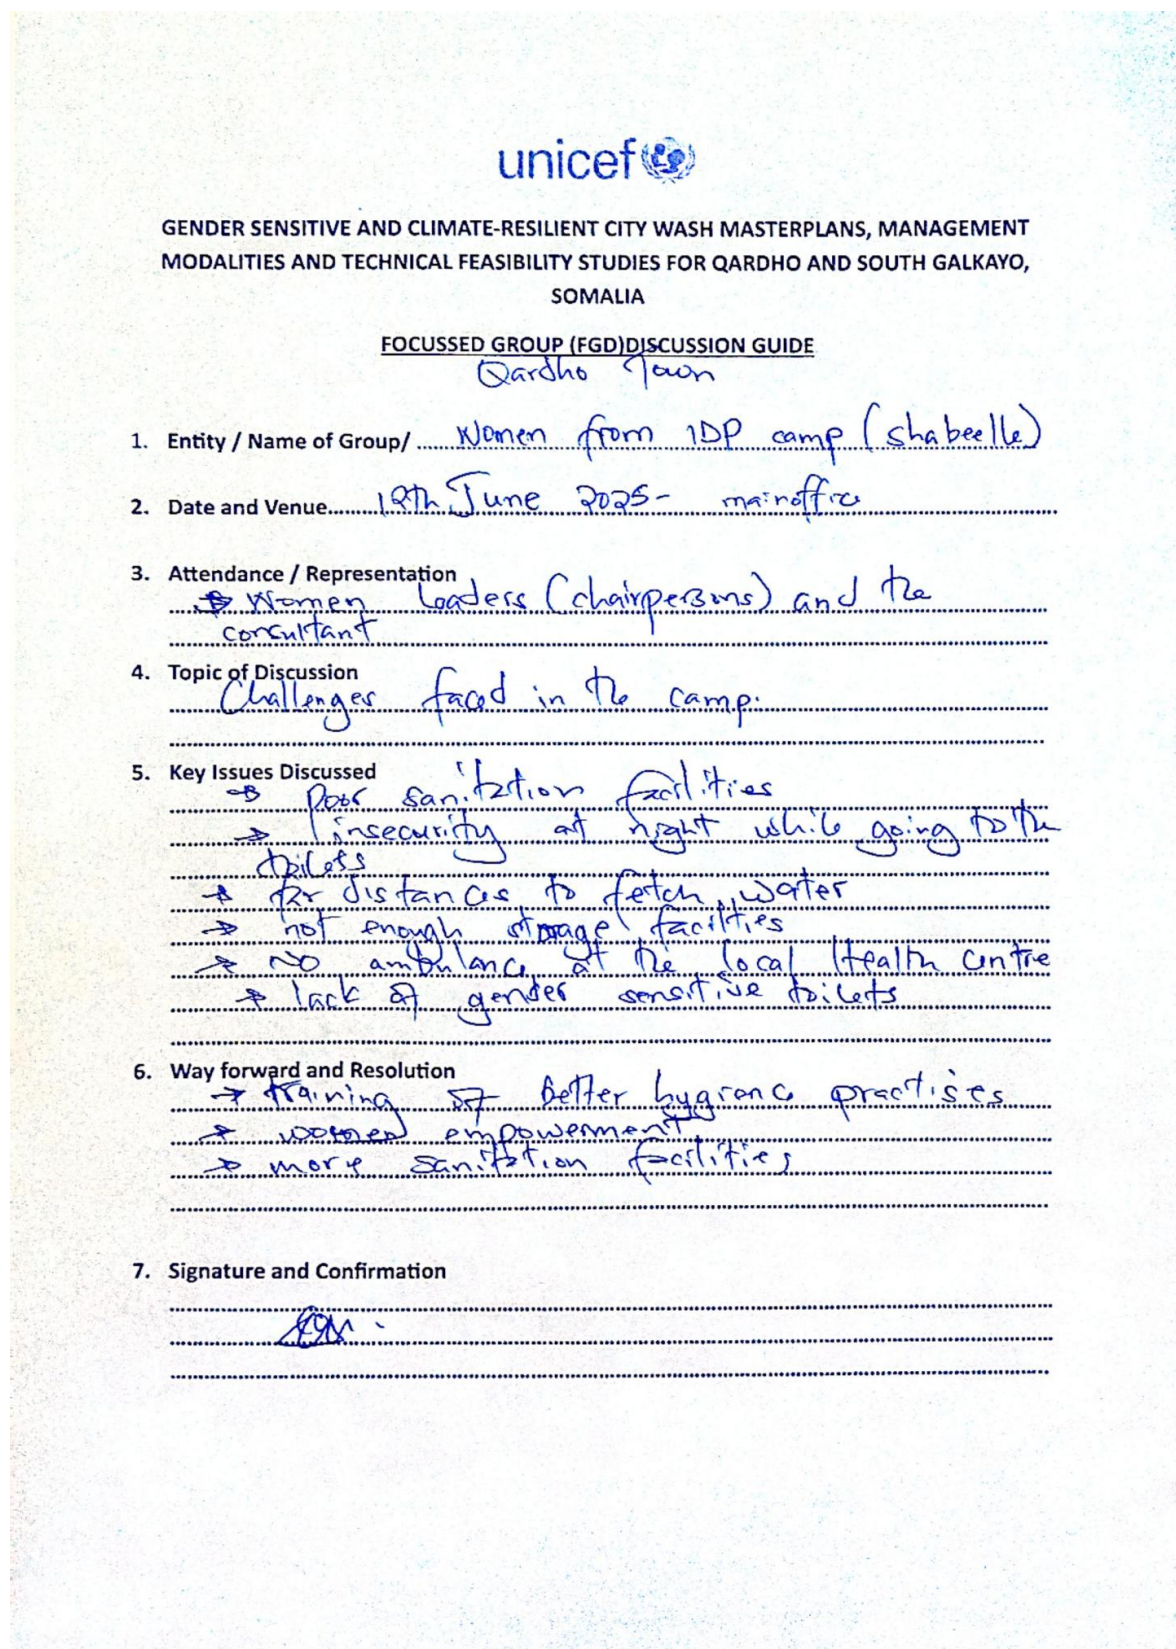 unicef
GENDER SENSITIVE AND CLIMATE-RESILIENT CITY WASH MASTERPLANS, MANAGEMENT
MODALITIES AND TECHNICAL FEASIBILITY STUDIES FOR QARDHO AND SOUTH GALKAYO,
SOMALIA
FOCUSSED GROUP (FGD)DISCUSSION GUIDE
Qardho Town
1. Entity / Name of Group/ ...... Women from IDP camp (shabeelle)
2. Date and Venue......... June 2025- main office
3. Attendance / Representation
→ Women Leaders (chairpersons) and the
consultant
4. Topic of Discussion
Challenges faced in the camp.
5. Key Issues Discussed
→ Poor sanitation facilities
→ insecurity at night while going to the
toilets
→ far distances to fetch water
→ not enough storage facilities
→ No ambulance at the local Health centre
→ lack of gender sensitive toilets
6. Way forward and Resolution
→ training of better hygiene practises
→ women empowerment
→ more sanitation facilities
7. Signature and Confirmation